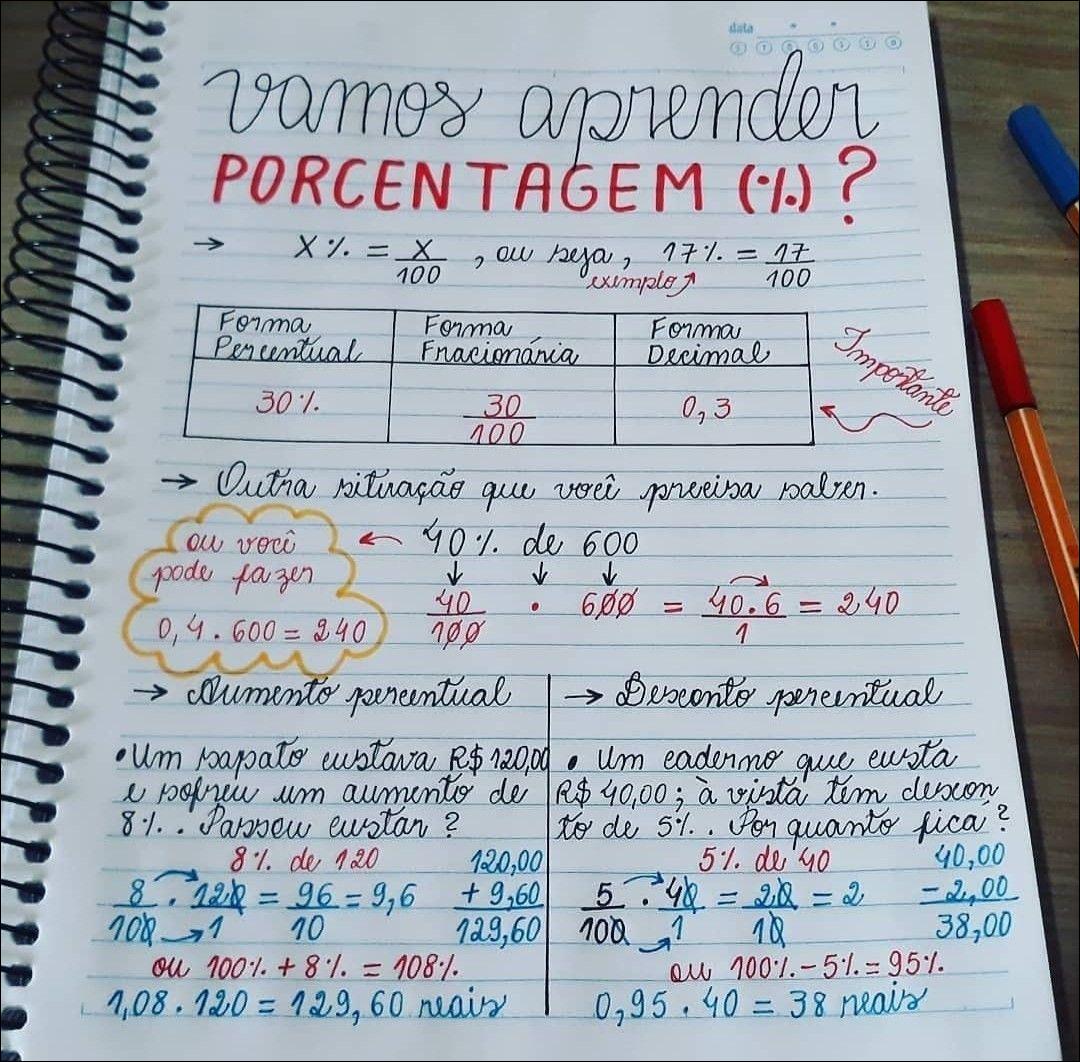 data
vamos aprender
PORCENTAGEM (%) ?
→ X% = X/100 , ou seja, 17% = 17/100
exemplo
Forma Percentual | Forma Fracionária | Forma Decimal
30% | 30/100 | 0,3
Importante
→ Outra situação que você precisa saber.
ou você pode fazer
0,4 . 600 = 240
← 40% de 600
↓ ↓ ↓
40/100 . 600 = 40.6/1 = 240
→ Aumento percentual
• Um sapato custava R$ 120,00
e sofreu um aumento de
8%. Passou custar ?
8% de 120
8/100 . 120/1 = 96/10 = 9,6
120,00
+ 9,60
129,60
ou 100% + 8% = 108%
1,08 . 120 = 129,60 reais
→ Desconto percentual
• Um caderno que custa
R$ 40,00; à vista tem descon
to de 5%. Por quanto fica?
5% de 40
5/100 . 40/1 = 20/10 = 2
40,00
- 2,00
38,00
ou 100% - 5% = 95%
0,95 . 40 = 38 reais